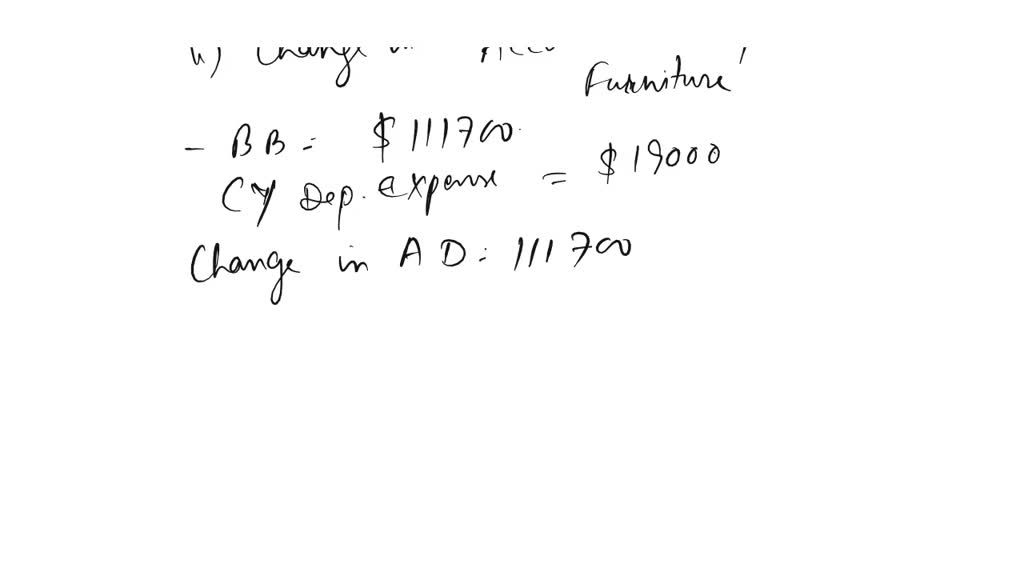 Change in
Furniture
- BB = $111700
CY Dep. expense = $19000
Change in AD: 111700